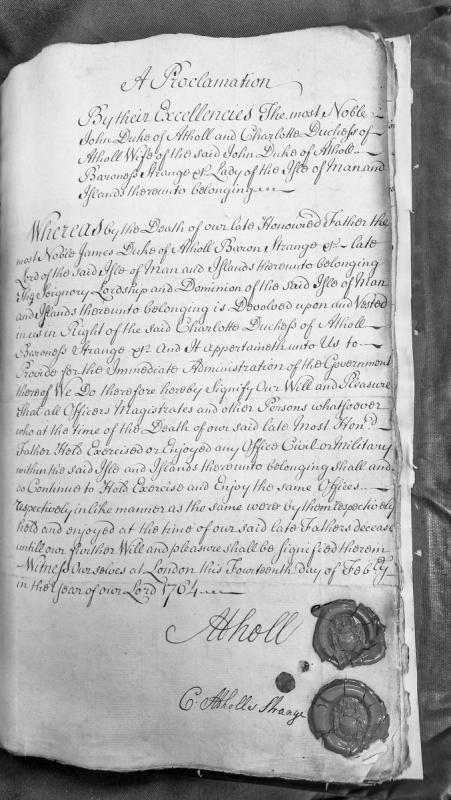 A Proclamation
By their Excellencies The most Noble
John Duke of Atholl and Charlotte Duchess of
Atholl Wife of the said John Duke of Atholl
Baroness Strange &c. Lady of the Isle of Man and
Islands thereunto belonging
Whereas by the Death of our late Honoured Father the
most Noble James Duke of Atholl Baron Strange &c. late
Lord of the said Isle of Man and Islands thereunto belonging
The Seignory Lordship and Dominion of the Said Isle of Man
and Islands thereunto belonging is Devolved upon and Vested
in us in Right of the said Charlotte Duchess of Atholl
Baroness Strange &c. And It appertaineth unto Us to
Provide for the Immediate Administration of the Government
thereof We Do therefore hereby Signify Our Will and Pleasure
that all Officers Magistrates and other Persons whatsoever
who at the time of the Death of our said late Most Hon.d
Father Held Exercised or Enjoyed any Office Civil or Military
within the said Isle and Islands thereunto belonging shall and
do Continue to Hold Exercise and Enjoy the same Offices
respectively in like manner as the same were by them respectively
held and enjoyed at the time of our said late Fathers decease
untill our further Will and pleasure shall be signified therein
Witness Ourselves at London this Fourteenth Day of Feb.ry
in the Year of our Lord 1764
Atholl
C: Atholle Strange